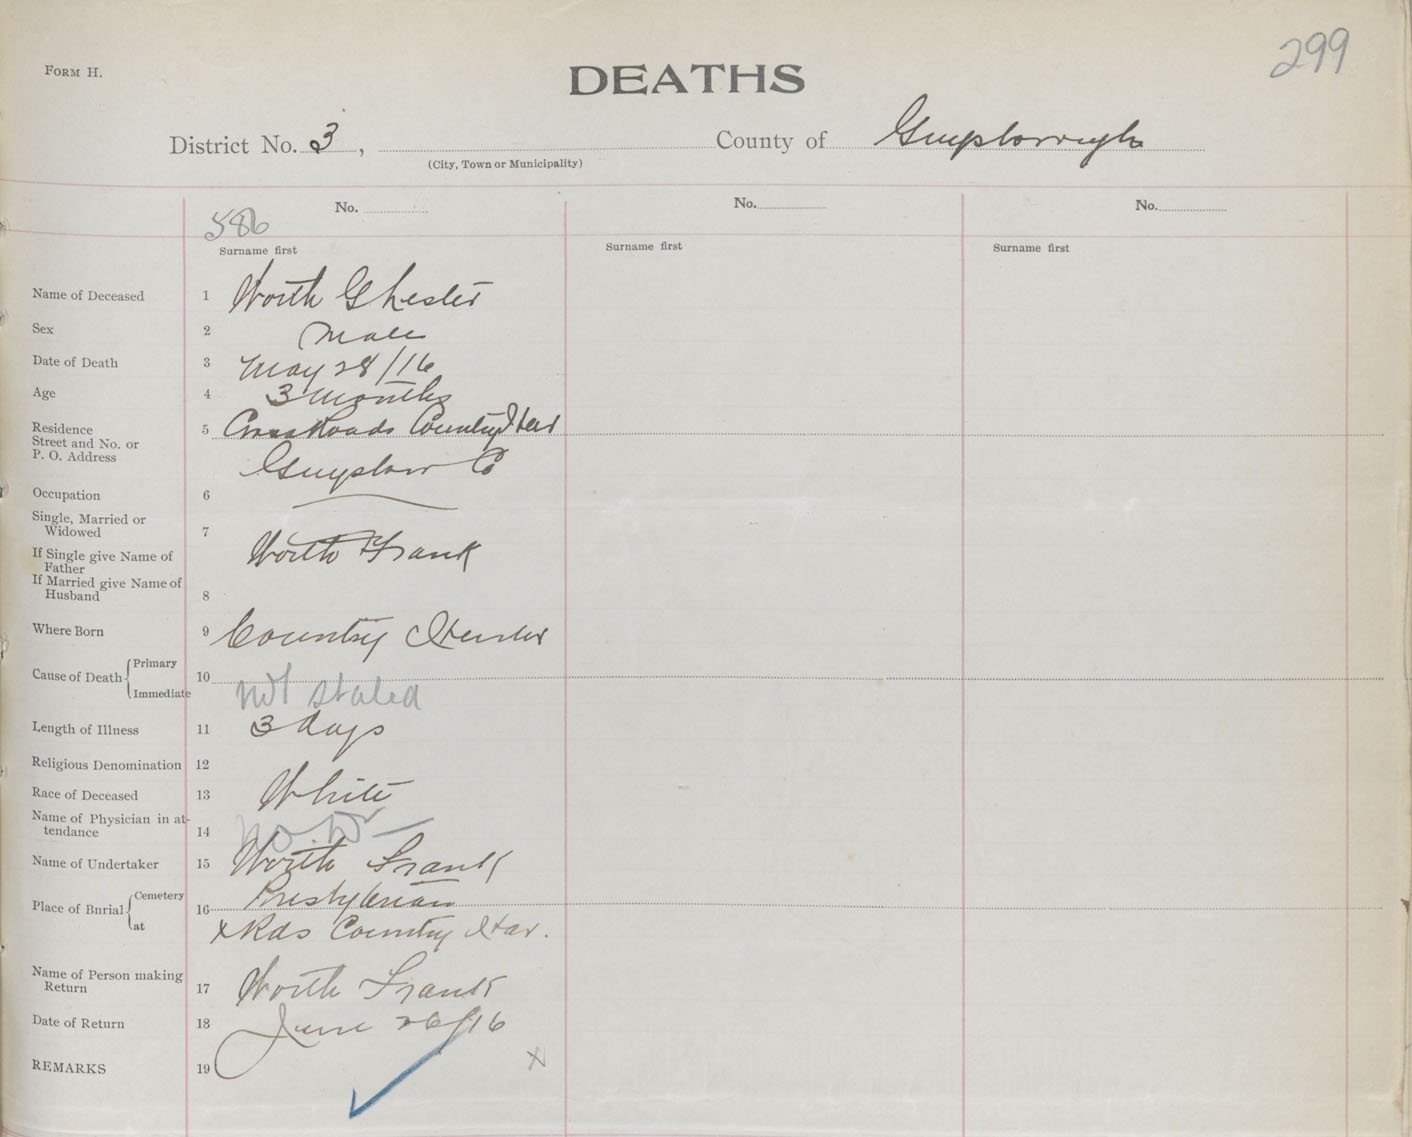 299
FORM H.
DEATHS
District No. 3, County of Guysborough
(City, Town or Municipality)
No. No. No.
586
Surname first Surname first Surname first
Name of Deceased 1 Worth Chester
Sex 2 Male
Date of Death 3 May 28/16
Age 4 3 months
Residence 5 Cross Roads Country Har
Street and No. or
P. O. Address Guysboro Co
Occupation 6
Single, Married or
Widowed 7
If Single give Name of Worth Frank
Father
If Married give Name of
Husband 8
Where Born 9 Country
Cause of Death Primary 10
Immediate not stated
Length of Illness 11 3 days
Religious Denomination 12
Race of Deceased 13 White
Name of Physician in at-
tendance 14 no. Dr —
Name of Undertaker 15 Worth Frank
Place of Burial Cemetery 16 Presbyterian
at X Rds Country Har.
Name of Person making
Return 17 Worth Frank
Date of Return 18 June 26/16
REMARKS 19 X